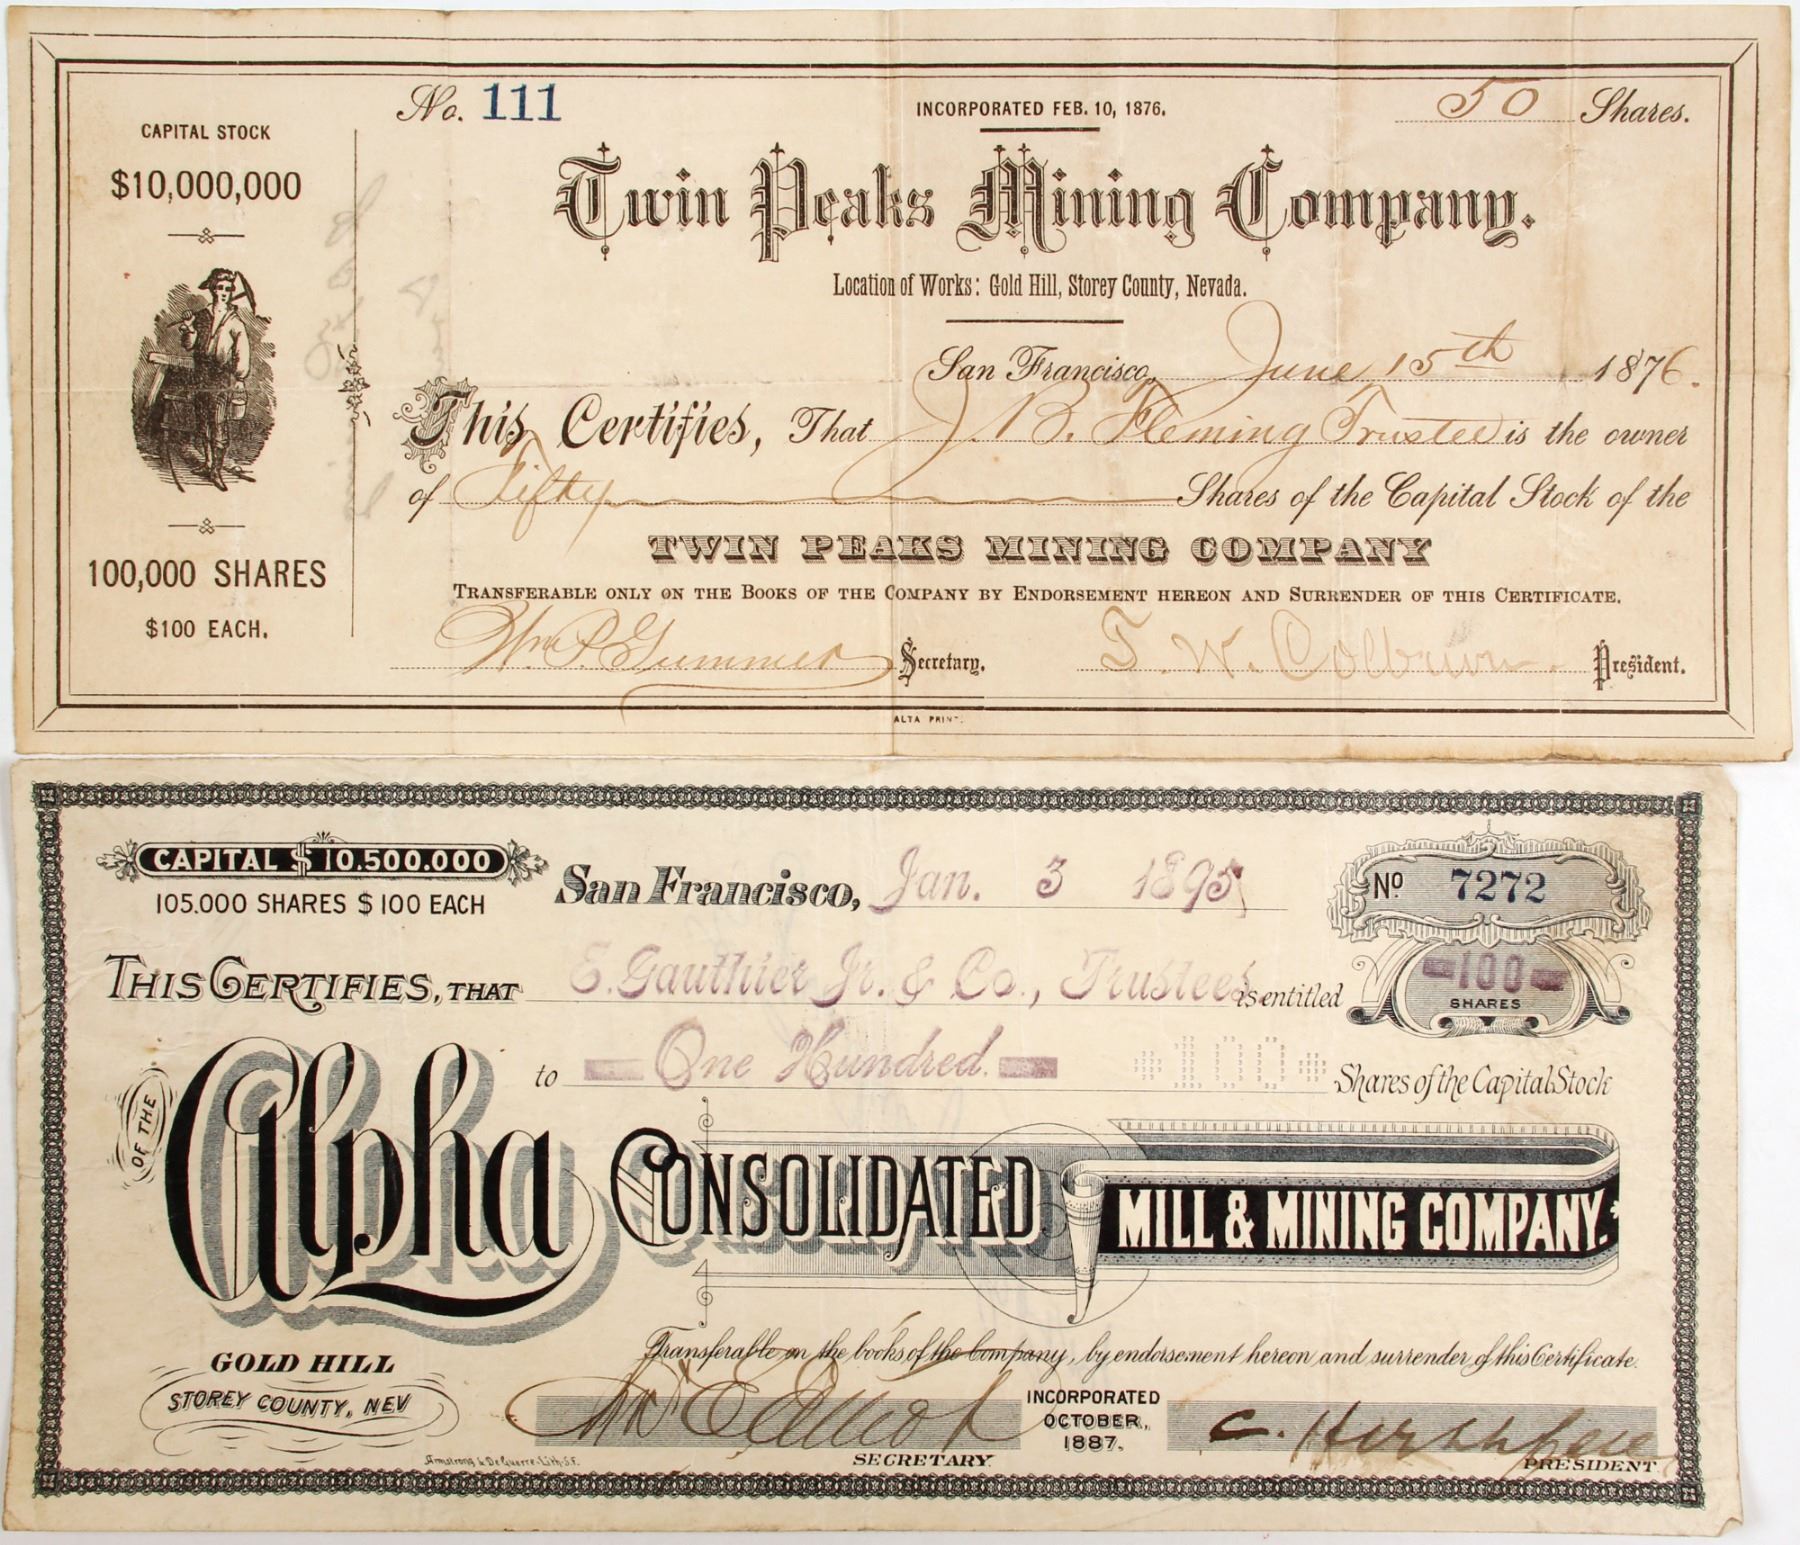 No. 111
INCORPORATED FEB. 10, 1876.
50 Shares.
CAPITAL STOCK
$10,000,000
Twin Peaks Mining Company.
Location of Works: Gold Hill, Storey County, Nevada.
San Francisco, June 15th 1876.
This Certifies, That J. B. Fleming Trustee is the owner
of Fifty Shares of the Capital Stock of the
TWIN PEAKS MINING COMPANY
100,000 SHARES
$100 EACH.
TRANSFERABLE ONLY ON THE BOOKS OF THE COMPANY BY ENDORSEMENT HEREON AND SURRENDER OF THIS CERTIFICATE.
Secretary. T. W. Colburn. President.
ALTA PRINT.
CAPITAL $10.500.000
105.000 SHARES $100 EACH
San Francisco, Jan. 3 1895
No 7272
THIS CERTIFIES, THAT E. Gauthier Jr. & Co., Trustees is entitled
-100-
SHARES
to One Hundred. *100* Shares of the Capital Stock
OF THE Alpha CONSOLIDATED MILL & MINING COMPANY.
GOLD HILL
STOREY COUNTY, NEV
Transferable on the books of the Company, by endorsement hereon and surrender of this Certificate.
INCORPORATED
OCTOBER,
1887.
SECRETARY
C. Hirshfeld
PRESIDENT
Armstrong & DeGuerre-Lith, S.F.